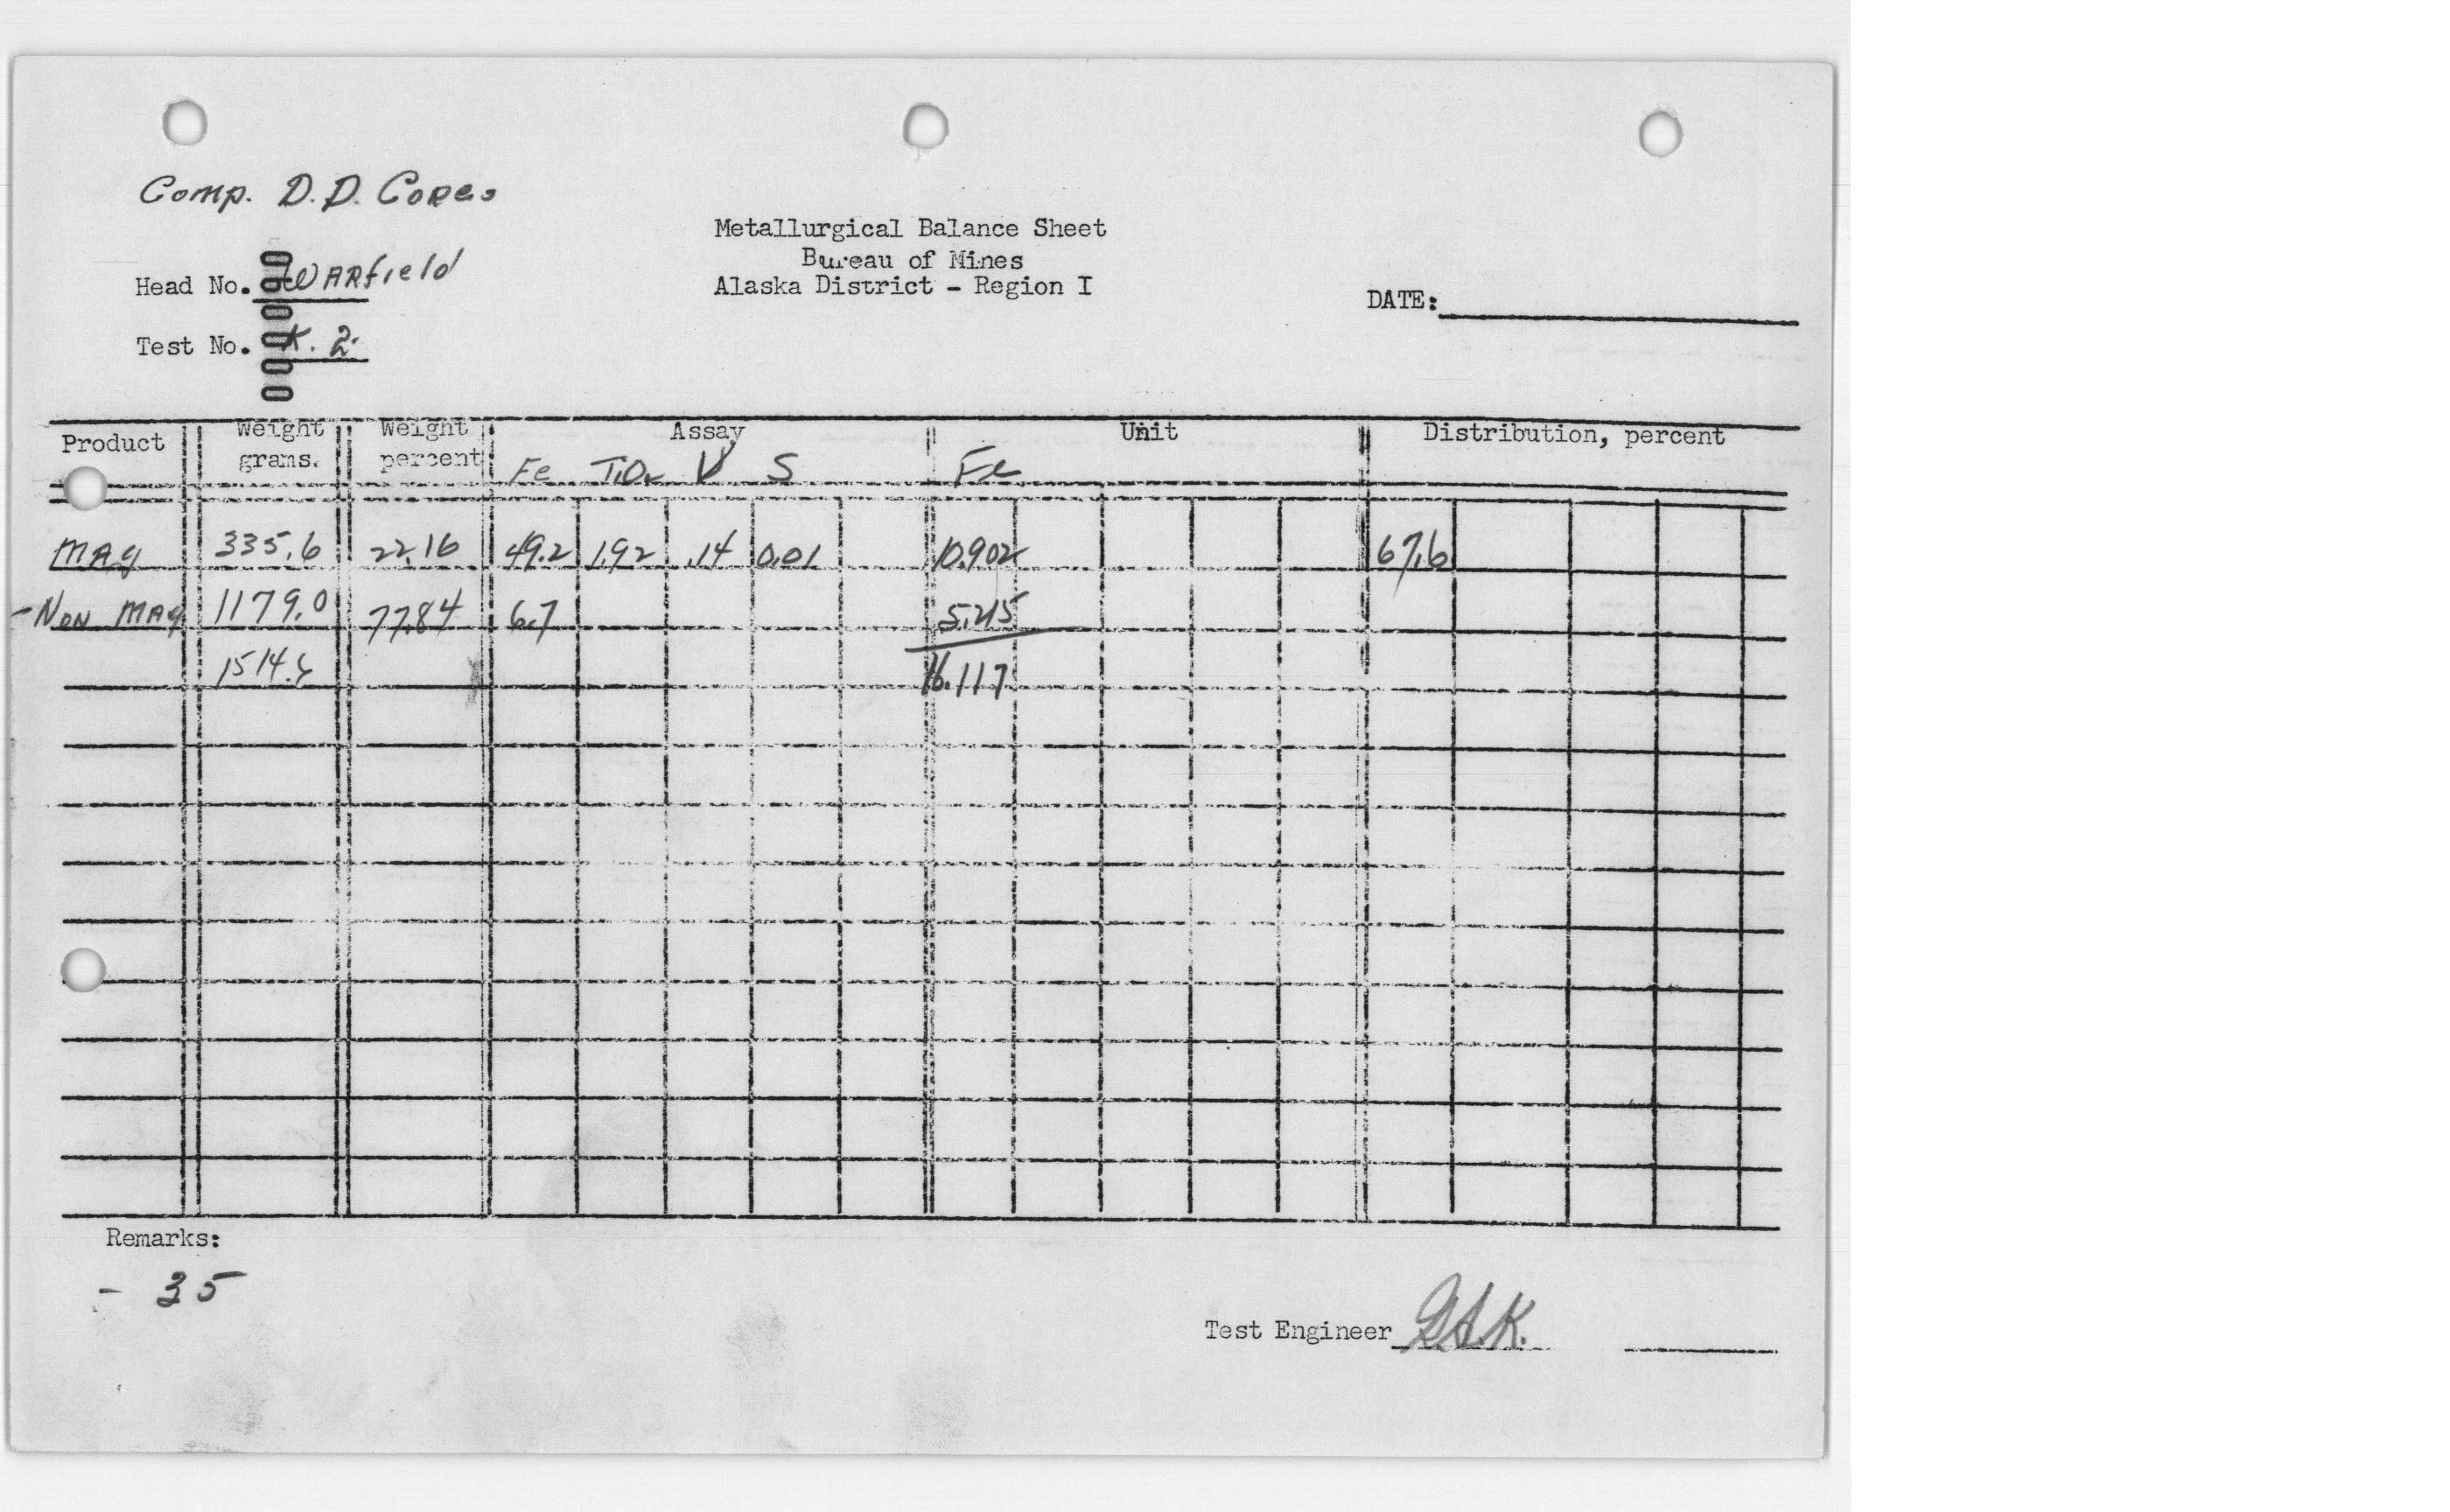 Comp. D.D. Cores
Metallurgical Balance Sheet
Bureau of Mines
Alaska District - Region I
Head No. Warfield
DATE:
Test No. K. 2.
Product Weight grams. Weight percent Assay Unit Distribution, percent
Fe TiO2 V S Fe
Mag 335.6 22.16 49.2 1.92 .14 0.01 10.902 67.6
-Non Mag 1179.0 77.84 6.7 5.215
1514.6 16.117
Remarks:
- 35
Test Engineer